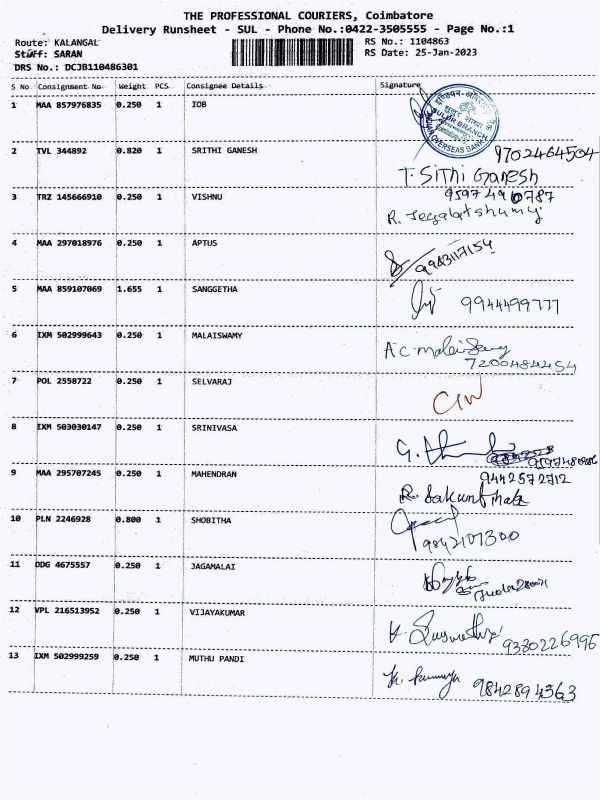 THE PROFESSIONAL COURIERS, Coimbatore
Delivery Runsheet - SUL - Phone No.:0422-3505555 - Page No.:1
Route: KALANGAL RS No.: 1104863
Staff: SARAN RS Date: 25-Jan-2023
DRS No.: DCJB110486301
S No Consignment No Weight PCS Consignee Details Signature
1 MAA 857976835 0.250 1 IOB
SULUR BRANCH
INDIAN OVERSEAS BANK
2 TVL 344892 0.820 1 SRITHI GANESH 9702464504
T. SiThi Ganesh
3 TRZ 145666910 0.250 1 VISHNU 9597490787
4 MAA 297018976 0.250 1 APTUS 9943117154
5 MAA 859107069 1.655 1 SANGGETHA 9944499777
6 IXM 502999643 0.250 1 MALAISWAMY
7200484454
7 POL 2558722 0.250 1 SELVARAJ
8 IXM 503030147 0.250 1 SRINIVASA
9 MAA 295707245 0.250 1 MAHENDRAN 9442572712
10 PLN 2246928 0.800 1 SHOBITHA
9842107300
11 DDG 4675557 0.250 1 JAGAMALAI
12 VPL 216513952 0.250 1 VIJAYAKUMAR 9330226996
13 IXM 502999259 0.250 1 MUTHU PANDI 9842894363